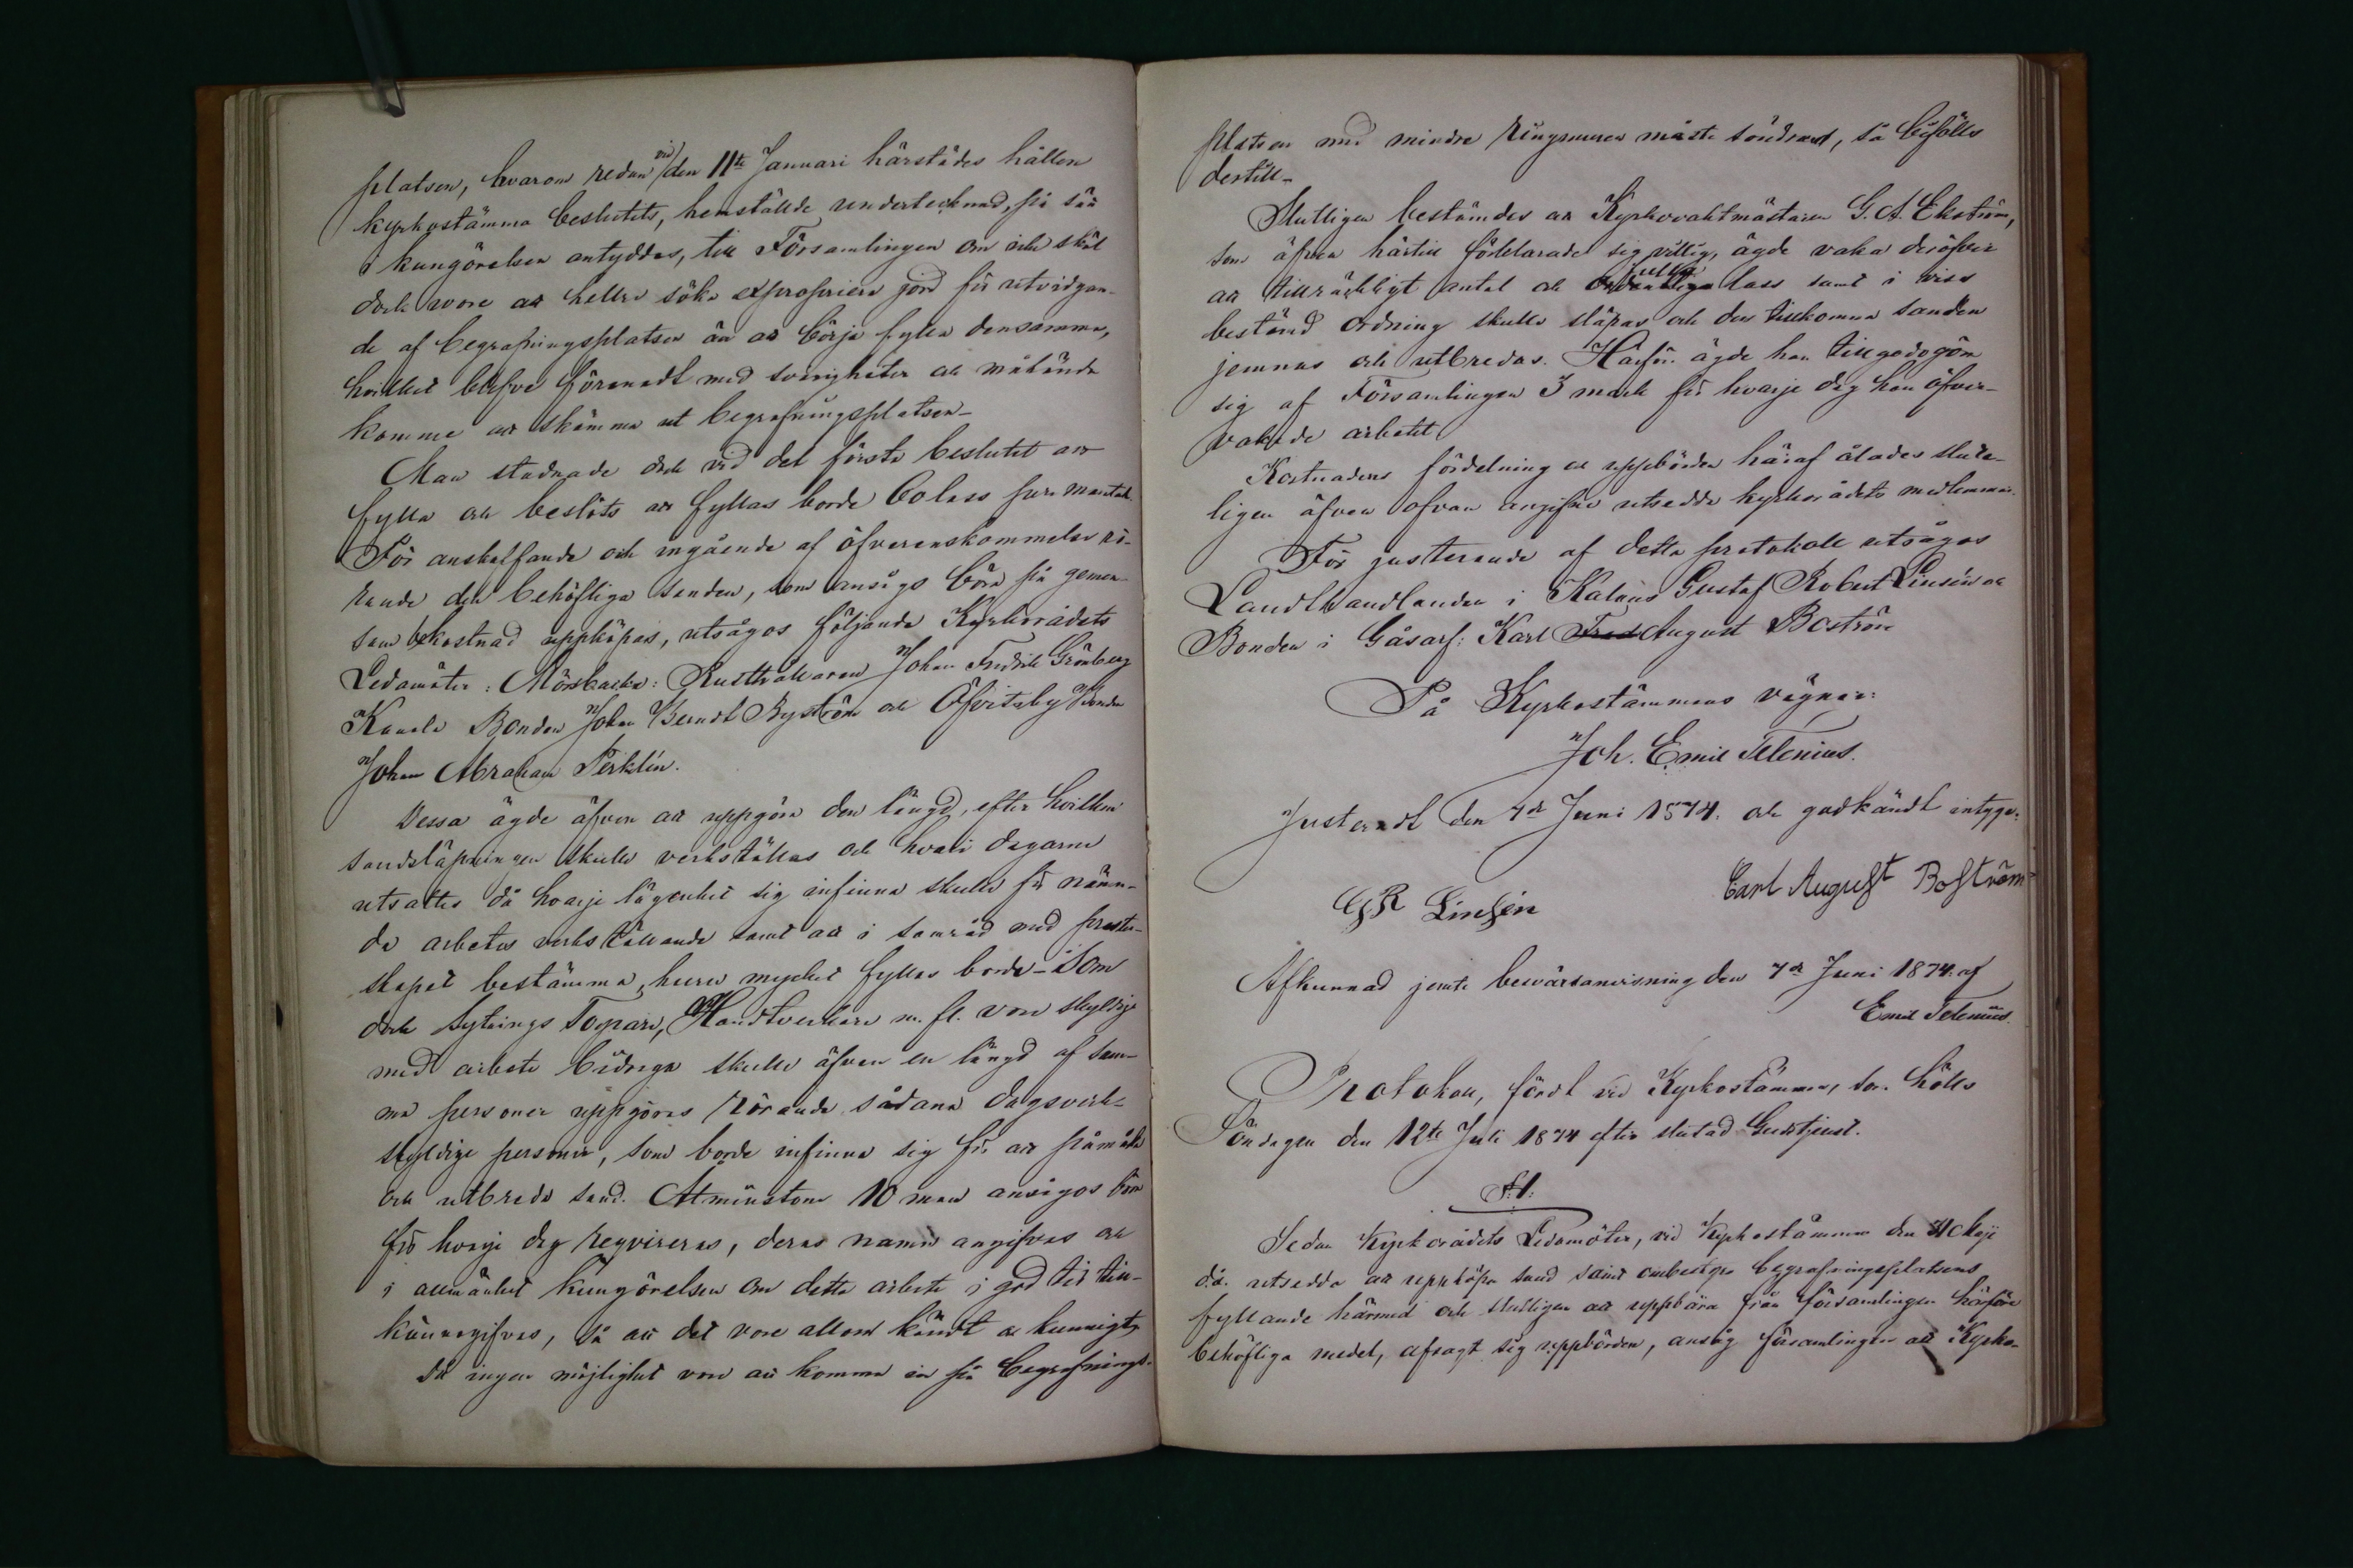 platsen, hvarom redan vid den 11te Januari härstädes hållen
kyrkostämma beslutits, hemställde undertecknad, på sätt
i kungörelsen antyddes, till Församlingen om icke skäl
dock vore att hellre söka expropriera jord för utvidgan-
de af begrafningsplatsen än att börja fylla densamma,
hvilket blefve förenadt med svårigheter och måhända
komme att skämma ut begrafningsplatsen-
Man stadnade dock vid det första beslutet att
fylla och beslöts att fyllas borde 60 lass per mantal.
För anskaffande och ingående af öfverenskommelse rö-
rande den behöfliga sanden, som ansågs böra på gemen-
sam bekostnad uppköpas, utsågos följande Kyrkorådets
Ledamöter: Mörsbacka: Rusthållaren Johan Fredrik Grönberg
Bonden Johan Berndt Byström och Öfvitsby Bonden
Johan Abraham Perklin.
Dessa ägde äfven att uppgöra den längd, efter hvilken
sandsläpningen skulle verkställas och hvari dagarne
utsattes då hvarje lägenhet sig infinna skulle för nämn-
de arbetes verkställande samt att i samråd med prester-
skapet bestämma, huru mycket fyllas borde - Som
dock Sytnings Torpare, Handtverkare m. fl. vore skyldige
med arbete bidraga skulle äfven en längd af sam-
ma personer uppgöras rörande sådana dagsverk-
skyldige personer, som borde infinna sig för att påmåka
och utbreda sand. Åtminstone 10 man ansågos böra
för hvarje dag reqvireras, deras namn angifvas och
i allmänhet kungörelsen om detta arbete i god tid till-
kännagifvas, så att det vore allom kändt och kunnigt,
Då ingen möjlighet vore att komma in på begrafnings-
platsen med mindre Ringmuren måste söndras, så biföllo
dertill-
Slutligen bestämdes att Kyrkovaktmästaren G. A. Ekström,
som äfven härtill förklarade sig villig, ägde vaka deröfver
att tillräckligt antal och fulla lass samt i viss
bestämd ordning skulle släpas och den tillkomna sanden
jemnas och utbredas. Härför ägde han tillgodogöra
sig af Församlingen 3 mark för hvarje dag han öfver-
vakade arbetet
Kostnadens fördelning och uppbörden häraf ålades slut-
ligen äfven ofvan angifne utsedda kyrkorådets medlemmar.
För justerande af detta protokoll utsågos
Landthandlanden i Kalnäs Gustaf Robert Linsén och
Bonden i Gåsarf: Karl August Boström
På Kyrkostämmans vägnar:
Joh. Emil Telenius.
Justeradt den 7de Juni 1874. och godkändt intyga:
GR Linsén Carl August Boström
Afkunnad jemte besvärsanvisning den 7de Juni 1874. af
Emil Telenius.
Protokoll, fördt vid Kyrkostämma, som hölls
Söndagen den 12te Juli 1874 efter slutad Gudstjenst.
§.1.
Sedan Kyrkorådets Ledamöter, vid Kyrkostämman den Maji
d.å. utsedda att uppköpa sand samt ombestyra begrafningsplatsens
fyllande härmed och slutligen att uppbära från församlingen härföre
behöfliga medel, afsagt sig uppbörden, ansåg församlingen att Kyrko-